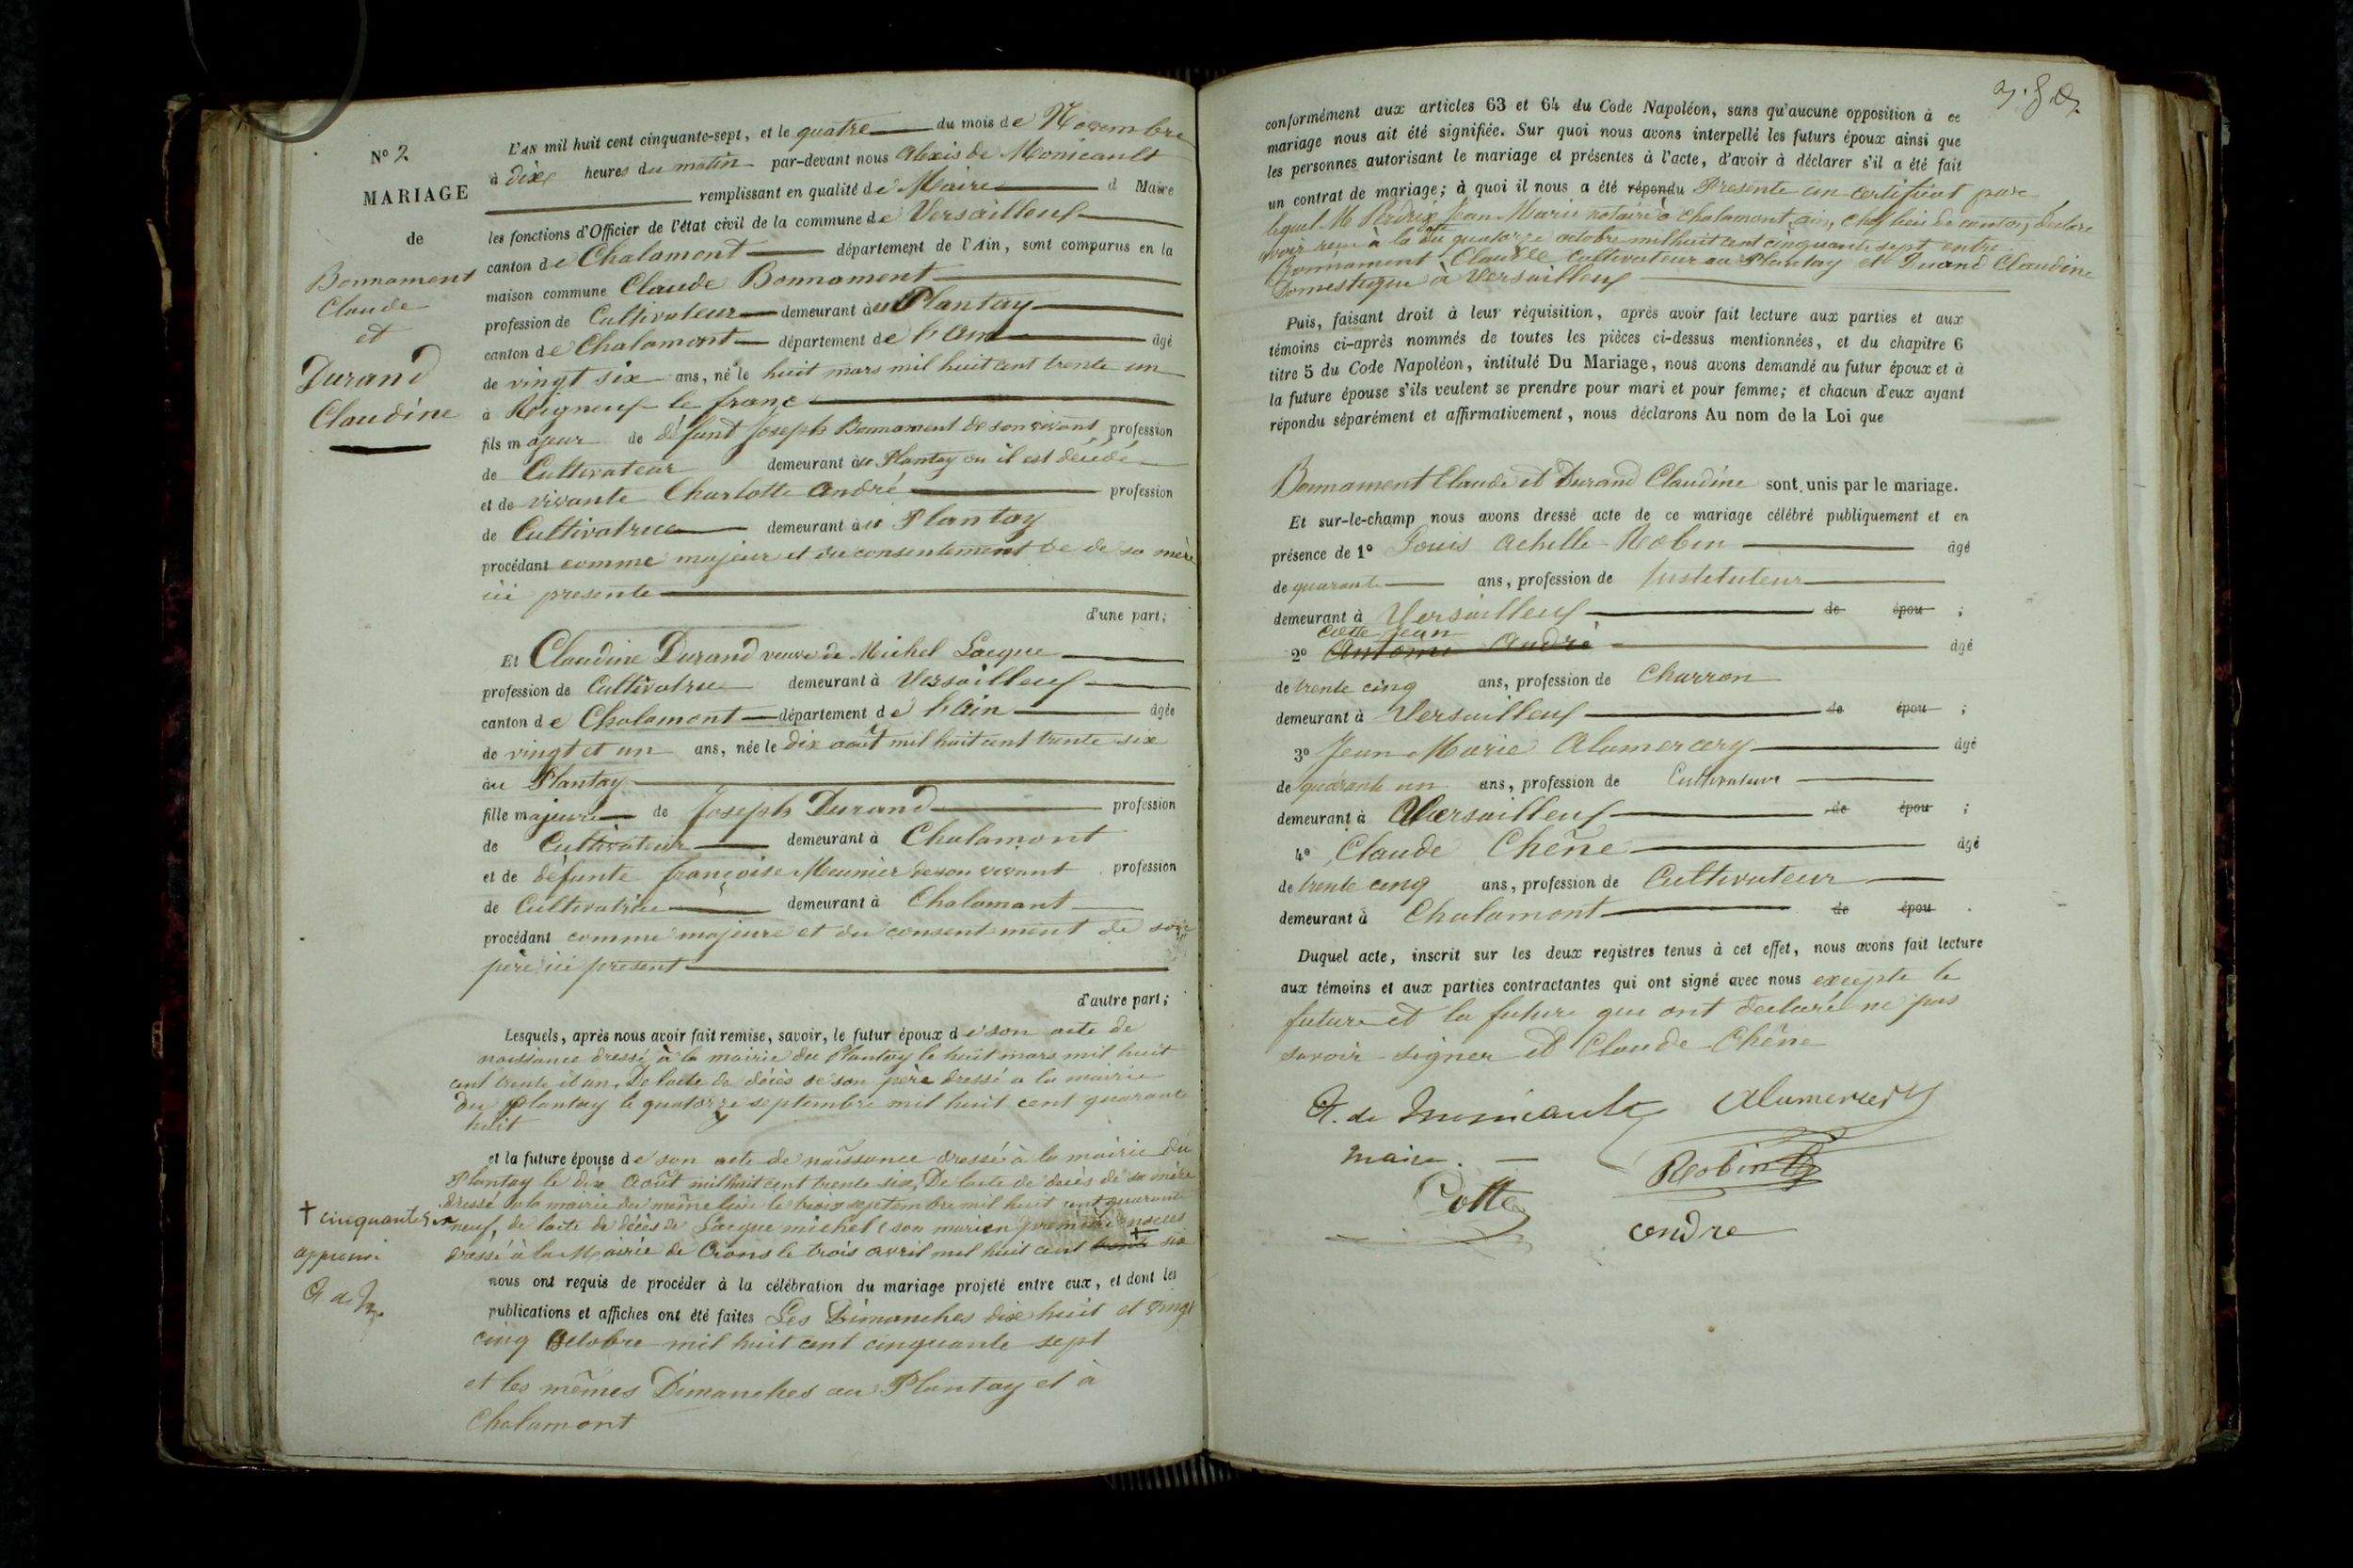 N° 2
MARIAGE
de
Bonnament
Claude
et
Durand
Claudine
L'AN mil huit cent cinquante-sept, et le quatre du mois de Novembre
à dix heures du matin par-devant nous Alexis de Monicault
remplissant en qualité de Maire d Maire
les fonctions d'Officier de l'état civil de la commune de Versailleux
canton de Chalamont département de l'Ain, sont comparus en la
maison commune Claude Bonnament
profession de Cultivateur demeurant àu Plantay
canton de Chalamont département de l'Ain âgé
de vingt six ans, né le huit mars mil huit cent trente un
à Rigneux le franc
fils majeur de défunt Joseph Bonnament de son vivant profession
de Cultivateur demeurant àu Plantay ou il est décédé
et de vivante Charlotte André profession
de Cultivatrice demeurant àu Plantay
procédant comme majeur et du consentement de de sa mère
ici presente
d'une part;
Et Claudine Durand veuve de Michel Lacque
profession de Cultivatrice demeurant à Versailleux
canton de Chalamont département de l'Ain âgée
de vingt et un ans, née le dix août mil huit cent trente six
àu Plantay
fille majeure de Joseph Durand profession
de Cultivateur demeurant à Chalamont
et de défunte françoise Meunier de son vivant profession
de Cultivatrice demeurant à Chalamont
procédant comme majeure et du consentement de son
père ici présent
d'autre part;
Lesquels, après nous avoir fait remise, savoir, le futur époux de son acte de
naissance dressé à la mairie du Plantay le huit mars mil huit
cent trente et un, De l'acte de décès de son père dressé a la mairie
du plantay le quatorze septembre mil huit cent quarante
huit
et la future épouse de son acte de naissance dressé à la mairie du
Plantay le dix Août mil huit cent trente six, De l'acte de décès de sa mère
dressé a la mairie du même lieu le trois septembre mil huit cent quarante
neuf, de l'acte de décès de Lacque michel son mari en premières noces
dressé à la Mairie de Crans le trois avril mil huit cent trente six
† cinquante
approuvé
A de M
nous ont requis de procéder à la célébration du mariage projeté entre eux, et dont les
publications et affiches ont été faites Les Dimanches dix huit et vingt
cinq Octobre mil huit cent cinquante sept
et les mêmes Dimanches au Plantay et à
Chalamont
conformément aux articles 63 et 64 du Code Napoléon, sans qu'aucune opposition à ce
mariage nous ait été signifiée. Sur quoi nous avons interpellé les futurs époux ainsi que
les personnes autorisant le mariage et présentes à l'acte, d'avoir à déclarer s'il a été fait
un contrat de mariage; à quoi il nous a été répondu Presente un certificat par
lequel M Perdrix Jean Marie notaire à Chalamont, ain, chef lieu de canton, declare
avoir reçu à la date quatorze octobre mil huit cent cinquante sept entre
Bonnament Claude Cultivateur au Plantay et Durand Claudine
Domestique à Versailleux
Puis, faisant droit à leur réquisition, après avoir fait lecture aux parties et aux
témoins ci-après nommés de toutes les pièces ci-dessus mentionnées, et du chapitre 6
titre 5 du Code Napoléon, intitulé Du Mariage, nous avons demandé au futur époux et à
la future épouse s'ils veulent se prendre pour mari et pour femme; et chacun d'eux ayant
répondu séparément et affirmativement, nous déclarons Au nom de la Loi que
Bonnament Claude et Durand Claudine sont unis par le mariage.
Et sur-le-champ nous avons dressé acte de ce mariage célébré publiquement et en
présence de 1° Louis Achille Robin âgé
de quarante ans, profession de Instituteur
demeurant à Versailleux de épou ;
Cotte Jean
2° Antoine André âgé
de trente cinq ans, profession de Charron
demeurant à Versailleux de épou ;
3° Jean Marie Alamercery âgé
de quarante un ans, profession de Cultivateur
demeurant à Versailleux de épou ;
4° Claude Chêne âgé
de trente cinq ans, profession de Cultivateur
demeurant à Chalamont de épou .
Duquel acte, inscrit sur les deux registres tenus à cet effet, nous avons fait lecture
aux témoins et aux parties contractantes qui ont signé avec nous excepté le
futur et la future qui ont declaré ne pas
savoir signer et Claude Chêne
A. de Monicault Alamercery
Maire. Robin
Cotte
andre